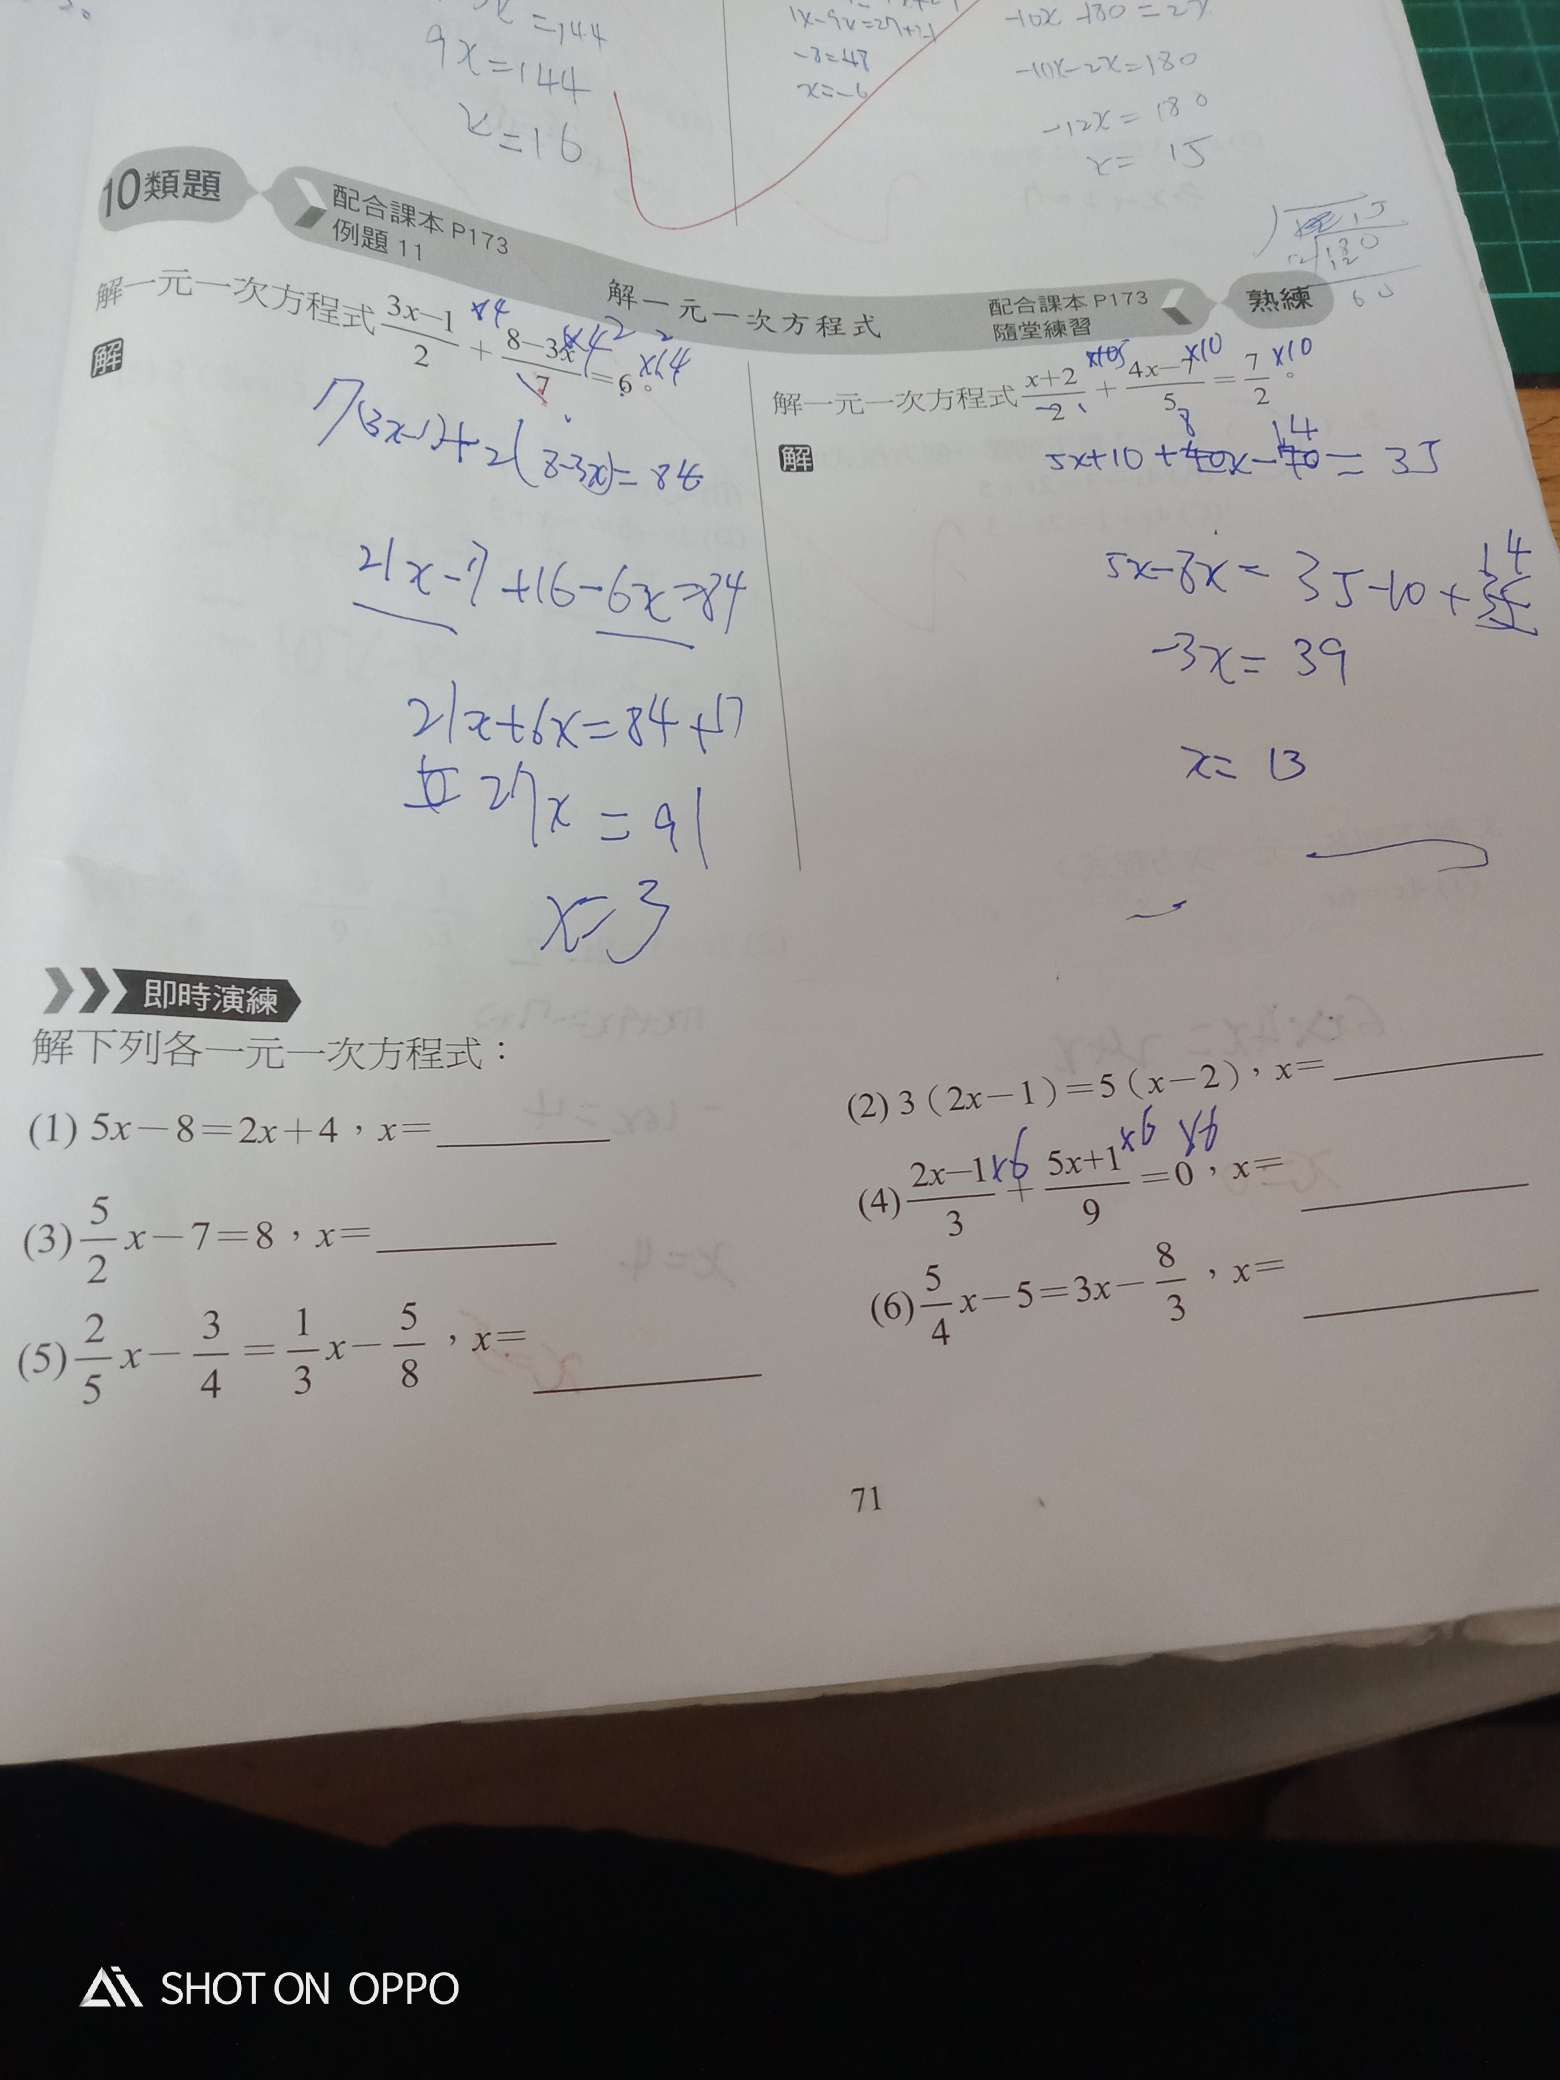 9x=144
x=16
-8=48
x=-6
-10x+180=2x
-10x-2x=180
-12x=180
x=15
10類題
配合課本 P173
例題 11
解一元一次方程式
配合課本 P173
隨堂練習
熟練
解一元一次方程式 (3x-1)/2 + (8-3x)/7 = 6。
解
7(3x-1)+2(8-3x)=84
21x-7+16-6x=84
21x+6x=84+17
27x=91
x=3
解一元一次方程式 (x+2)/2 + (4x-7)/5 = 7/2。
×10
×10
解
5x+10+8x-14=35
5x-8x=35-10+14
-3x=39
x=13
即時演練
解下列各一元一次方程式：
(1) 5x-8=2x+4，x=
(2) 3(2x-1)=5(x-2)，x=
(3) 5/2 x-7=8，x=
(4) (2x-1)/3 + (5x+1)/9 =0，x=
×6 ×6
(5) 2/5 x- 3/4 = 1/3 x- 5/8，x=
(6) 5/4 x-5=3x- 8/3，x=
71
SHOT ON OPPO